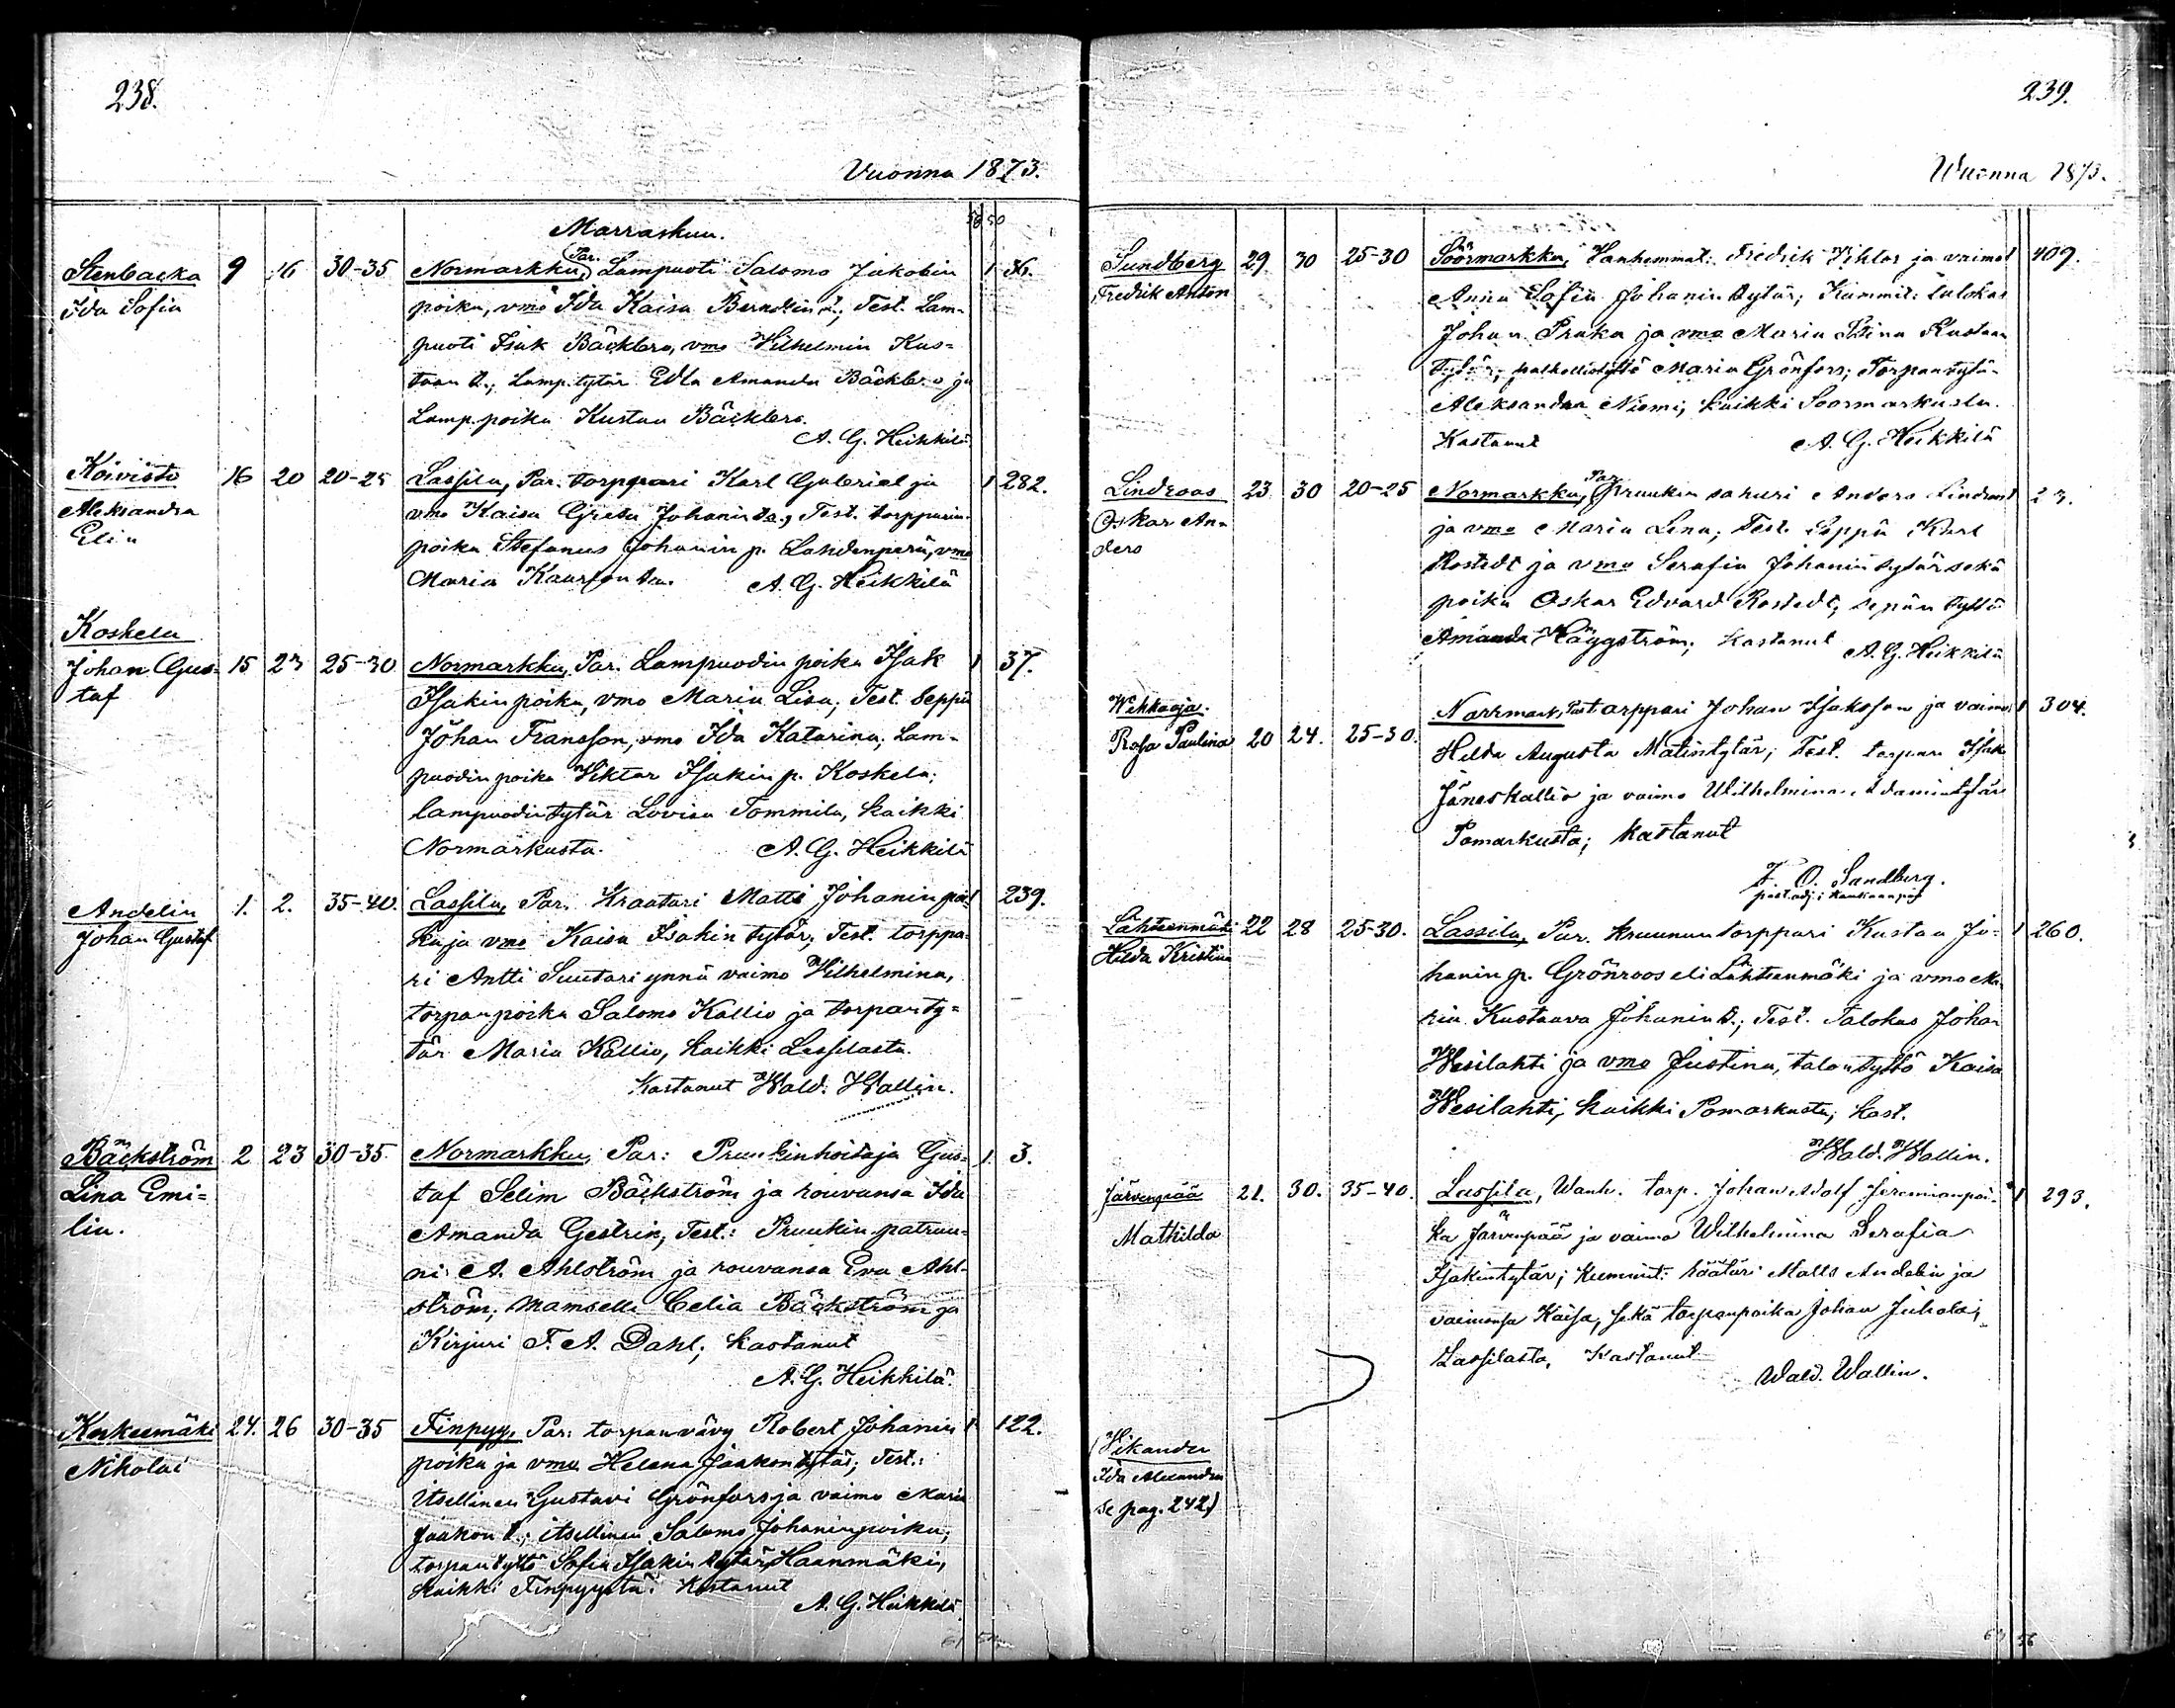 238.
Vuonna 1873.
58 50
Marraskuu.
Stenbacka 9 16 30-35 Normarkku, Par. Lampuoti Salomo Jakobin 1 36.
Ida Sofia poika, vmo Ida Kaisa t.; Test. Lam-
puoti Isak Bäcklers, vmo Vilhelmin Kus-
taan t.; Lamp. tytär Edla Amanda Bäcklers ja
Lamp. poika Kustaa Bäcklers.
A. G. Heikkilä
Koivisto 16 20 20-25 Lassila, Par. torppari Karl Gabriel ja 1 282.
Aleksandra vmo Kaisa Greta Johanin ta.; Test. torpparin
Elin poika Stefanus Johanin p. Lahdenperä, vmo
Maria ta. A. G. Heikkilä
Koskela
Johan Gus- 15 23 25-30 Normarkku, Par. Lampuodin poika Isak 1 37.
taf Isakin poika, vmo Maria Lisa; Test. Seppä
Johan Fransson, vmo Ida Katarina; Lam-
puodin poika Viktor Isakin p. Koskela;
lampuodin tytär Lovisa Tommila, kaikki
Normarkusta. A. G. Heikkilä
Andelin 1. 2. 35-40. Lassila, Par. Kraatari Matti Johanin poi- 1 239.
Johan Gustaf ka ja vmo Kaisa Isakin tytär; Test. torppa-
ri Antti Suutari ynnä vaimo Vilhelmina,
torpan poika Salomo Kallio ja torpan ty-
tär Maria Kallio, kaikki Lassilasta.
Kastanut Wald. Wallin.
Bäckström 2 23 30-35 Normarkku, Par: Pruukinhoitaja Gus- 1. 3.
Lina Emi- taf Selim Bäckström ja rouvansa Ida
lia. Amanda Gestrin; Test.: Pruukin patruu-
ni A. Ahlström ja rouvansa Eva Ahl-
ström; mamselli Celia Bäckström ja
Kirjuri F. A. Dahl; kastanut
A. G. Heikkilä.
Keskesmäki 24. 26 30-35 Finpyy, Par: torpan vävy Robert Johanin 1 122.
Nikolai poika ja vmo Helena Jaakon tytär; Test.:
Itsellinen Gustavi Grönfors ja vaimo Maria
Jaakon t.; itsellinen Salomo Johanin poika;
torpan tyttö Sofia Isakin tytär Haanmäki,
kaikki Finpyystä. Kastanut
A. G. Heikkilä
61
239.
Wuonna 1873.
Sundberg 29. 30 25-30 Söörmarkku, Vanhemmat: Fredrik Vihtor ja vaimo 1 409.
Fredrik Anton Anna Sofia Johanin tytär; Kummit: talokas
Johan Pruka ja vmo Maria Stina Kustaan
tytär; Maria Grönfors; Torpan tytär
Aleksandra Niemi, kaikki Soormarkusta.
Kastanut A. G. Heikkilä
Lindroos 23 30 20-25 Normarkku, Par. Pruukin sahuri Anders Lindroos 1 23.
Oskar An- ja vmo Maria Lena; Test. Seppä Karl
ders Rostedt ja vmo Serafia Johanin tytär sekä
poika Oskar Edvard Rostedt, sepän tyttö
Amanda Häggström; kastanut A. G. Heikkilä
Wihkaoja. Norrmark, torppari Johan Isaksson ja vaimo 1 304.
Rosa Paulina 20 24. 25-30. Hilda Augusta Matintytär; Test. torpari Isak
Jäneskallio ja vaimo Wilhelmina Adamintytär
Pomarkusta; kastanut
F. O. Sandberg.
past. adj. i Kankaanpää
Lähteenmäki 22 28 25-30. Lassila, Par. kruunun torppari Kustaa Jo- 1 260.
Hilda Kristina hanin p. Grönroos eli Lähteenmäki ja vmo Ma-
ria Kustaava Johanin t.; Test. Talokas Johan
Wesilahti ja vmo Justina, talon tyttö Kaisa
Wesilahti, kaikki Pomarkusta; kast.
Wald. Wallin.
Järvenpää 21. 30. 35-40. Lassila, Wanh. torp. Johan Adolf Jeremianpoi- 1 293.
Mathilda ka Järvenpää ja vaimo Wilhelmina Serafia
Isakintytär; Kummit: räätäri Matts Andelin ja
vaimonsa Kaisa, sekä torpanpoika Johan Juhala;
Lassilasta, Kastanut
Wald. Wallin.
(Vikander
Ida Alexandra
se pag. 242)
56